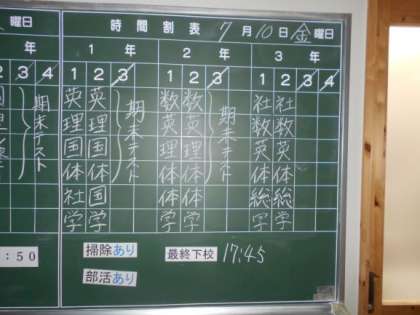 曜日 時間割表 7月10日金曜日
年 1年 2年 3年
2 3 4 1 2 3 1 2 3 1 2 3
期末テスト 期末テスト 期末テスト
英 英 数 数 社 社
理 理 英 英 数 数
国 国 理 理 英 英
体 体 体 体 体 体
社 国 体 体 総 総
学 学 学 学 学 学
:50 掃除あり 最終下校 17:45
部活あり